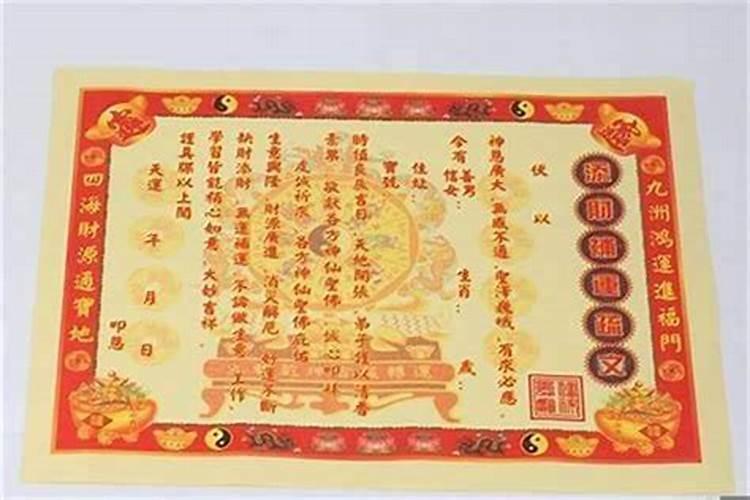 九洲鴻運進福門
添財補運疏文
伏以
神恩廣大 無感不通 聖澤巍峨 有求必應
今有 善男 信女 生肖 歲
住址
寶號
時值良辰吉日 天地開張 弟子僅以清香
素果 敬獻各方神仙聖佛 誠心叩拜
虔誠祈求 各方神仙聖佛庇佑
生意興隆 財源廣進 消災解厄 好運不斷
缺財添財 無運補運 不論做生意 工作、
學習皆能稱心如意 大妙吉祥
謹具疏以上聞
天運 年 月 日
叩懇
四海財源通寶地